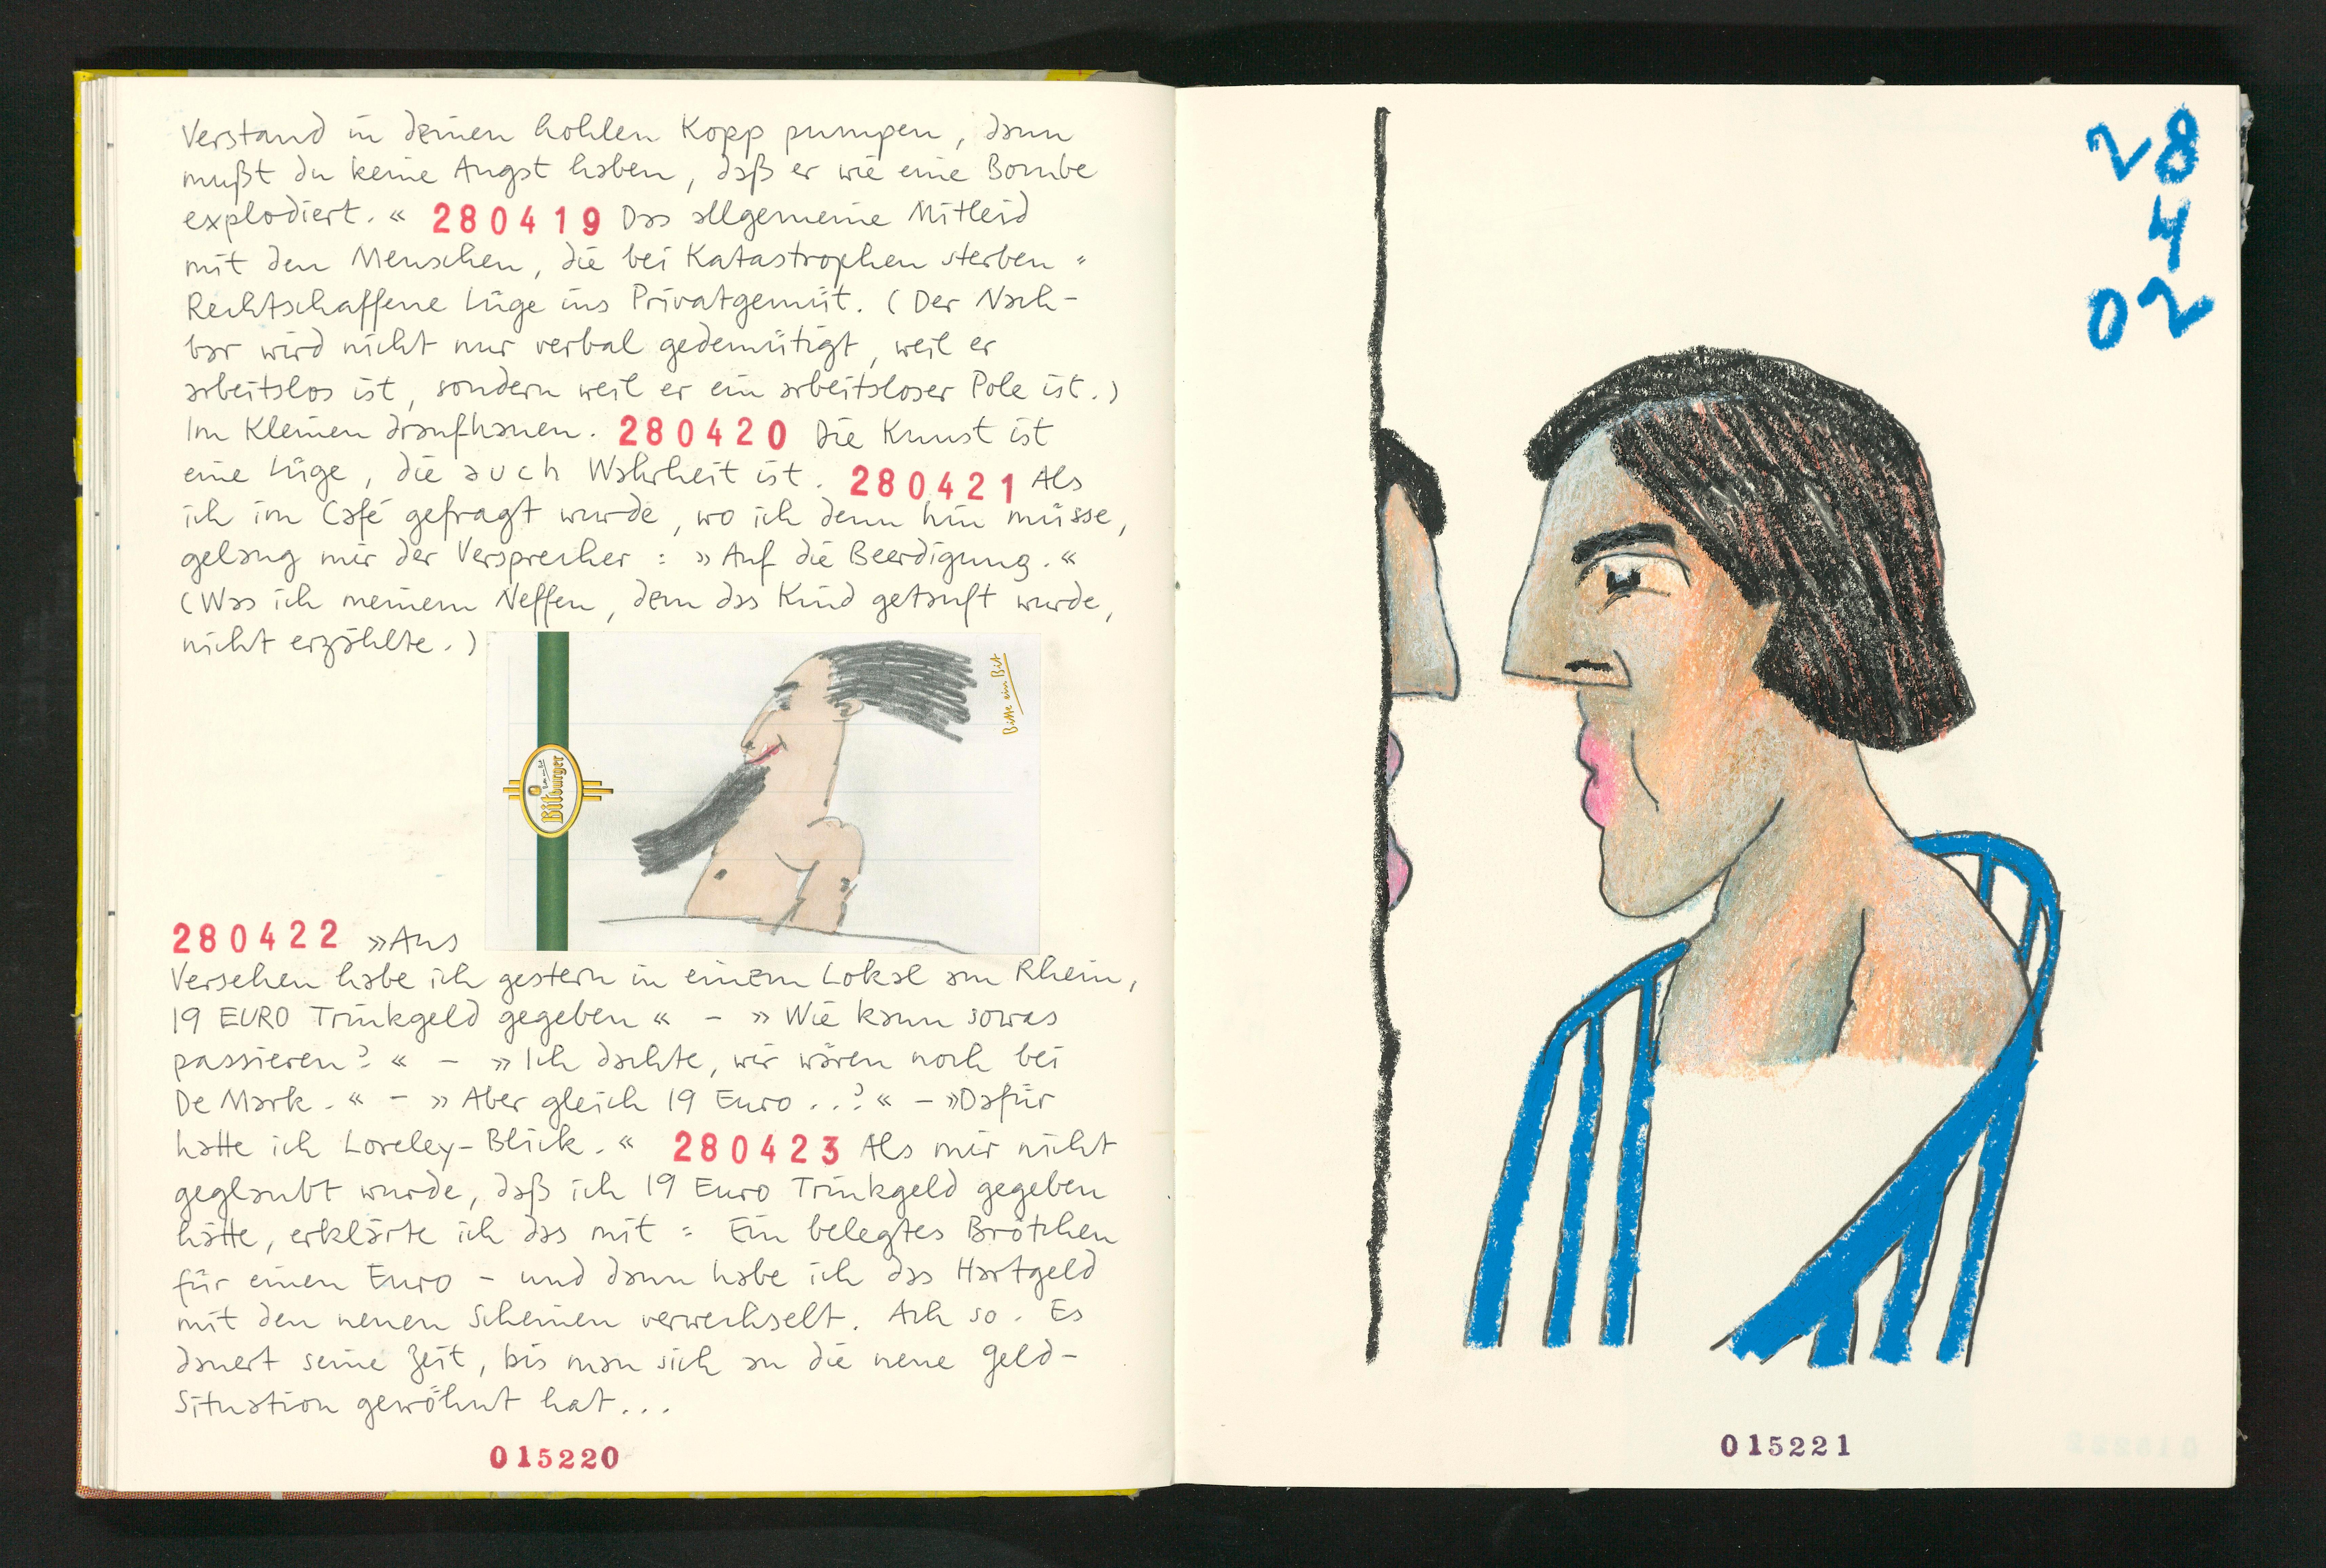 Verstand in deinen hohlen Kopp pumpen, dann
mußt du keine Angst haben, daß er wie eine Bombe
explodiert.« 280419 Das allgemeine Mitleid
mit den Menschen, die bei Katastrophen sterben =
Rechtschaffene Lüge ins Privatgemüt. (Der Nach-
bar wird nicht nur verbal gedemütigt, weil er
arbeitslos ist, sondern weil er ein arbeitsloser Pole ist.)
Im Kleinen draufhauen. 280420 Die Kunst ist
eine Lüge, die auch Wahrheit ist. 280421 Als
ich im Café gefragt wurde, wo ich denn hin müsse,
gelang mir der Versprecher: »Auf die Beerdigung.«
(Was ich meinem Neffen, dem das Kind getauft wurde,
nicht erzählte.)
Bitte ein Bit
Bitburger
280422 »Aus
Versehen habe ich gestern in einem Lokal am Rhein,
19 EURO Trinkgeld gegeben« – »Wie kann sowas
passieren?« – »Ich dachte, wir wären noch bei
De Mark.« – »Aber gleich 19 Euro..?« – »Dafür
hatte ich Loreley-Blick.« 280423 Als mir nicht
geglaubt wurde, daß ich 19 Euro Trinkgeld gegeben
hätte, erklärte ich das mit: Ein belegtes Brötchen
für einen Euro – und dann habe ich das Hartgeld
mit den neuen Scheinen verwechselt. Ach so. Es
dauert seine Zeit, bis man sich an die neue Geld-
Situation gewöhnt hat...
015220
28
4
02
015221